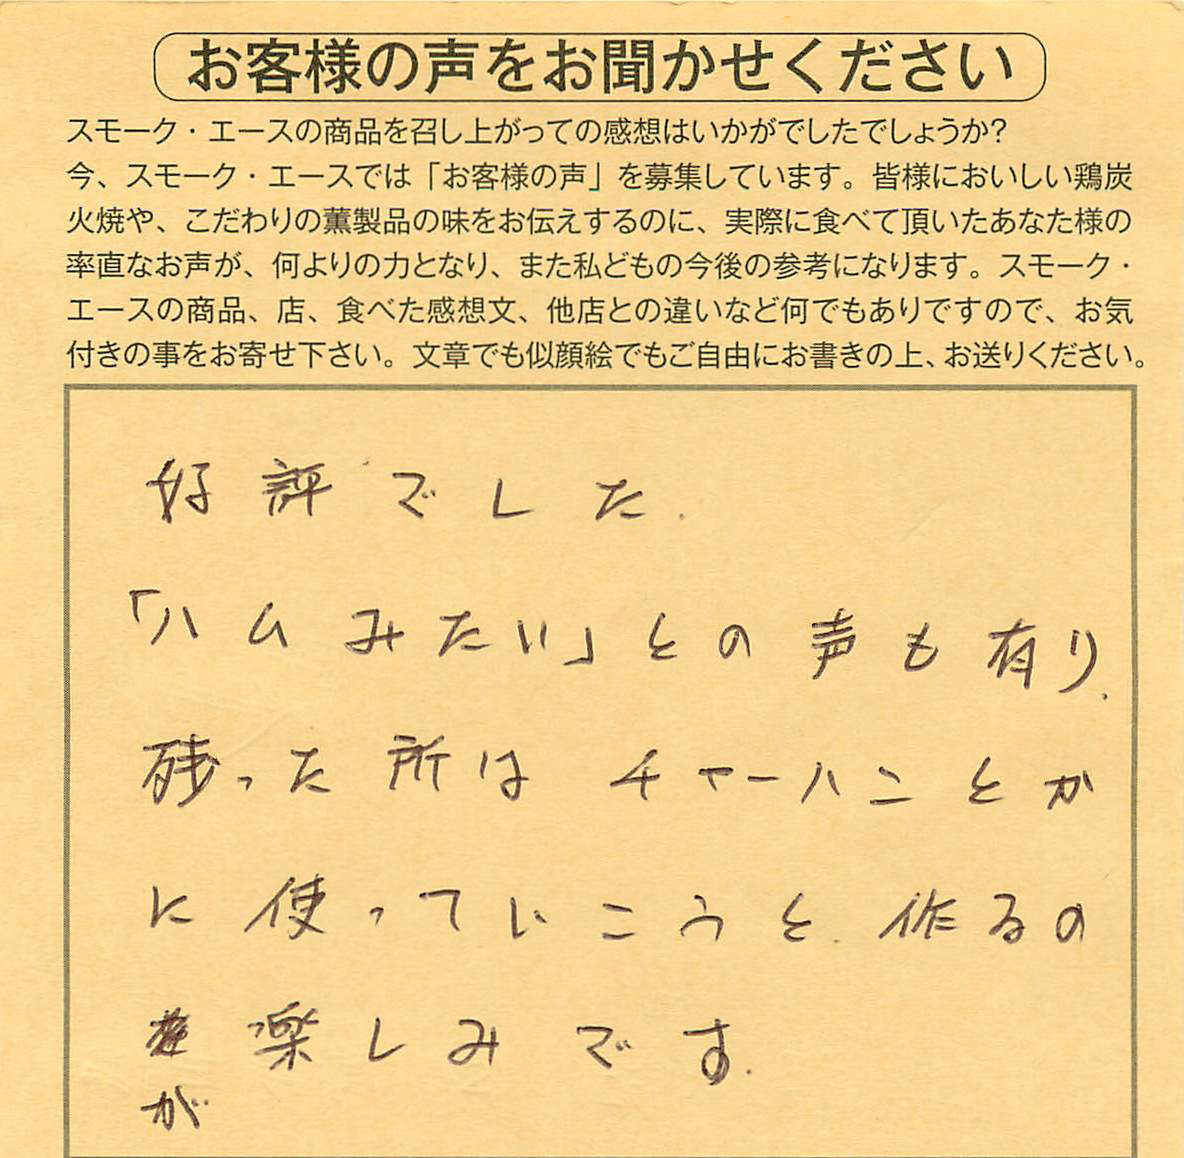 お客様の声をお聞かせください
スモーク・エースの商品を召し上がっての感想はいかがでしたでしょうか?
今、スモーク・エースでは「お客様の声」を募集しています。皆様においしい鶏炭
火焼や、こだわりの薫製品の味をお伝えするのに、実際に食べて頂いたあなた様の
率直なお声が、何よりの力となり、また私どもの今後の参考になります。スモーク・
エースの商品、店、食べた感想文、他店との違いなど何でもありですので、お気
付きの事をお寄せ下さい。文章でも似顔絵でもご自由にお書きの上、お送りください。
好評でした.
「ハムみたい」との声も有り.
残った所はチャーハンとか
に使っていこうと.作るの
楽しみです.
が